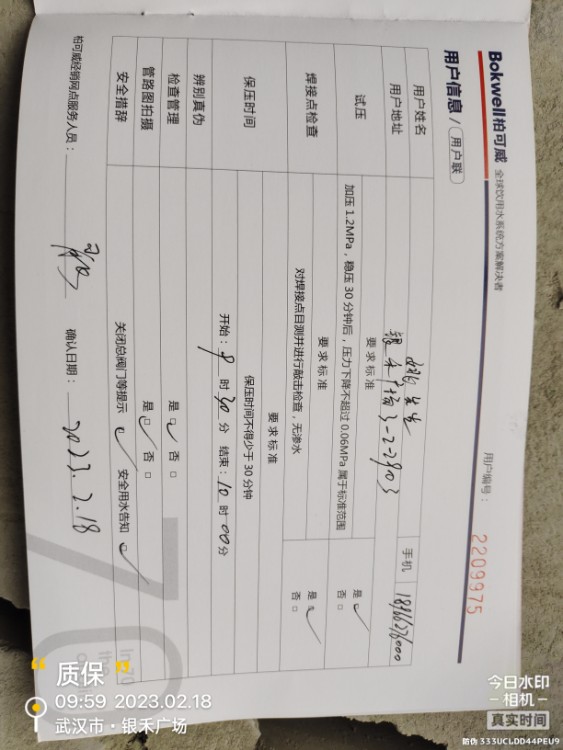 Bokwell柏可威 全球饮用水系统方案解决者
用户信息 / 用户联
用户编号：2209975
用户姓名 先生 手机 18966276000
用户地址 银禾广场3-2-2903
试压 要求标准
加压 1.2MPa，稳压 30 分钟后，压力下降不超过 0.06MPa 属于标准范围 是 ☑ 否 □
焊接点检查 要求标准
对焊接点目测并进行敲击检查，无渗水 是 ☑ 否 □
保压时间 要求标准
保压时间不得少于 30 分钟
开始：9 时 30 分 结束：10 时 00 分
辨别真伪
检查管理 是 ☑ 否 □
管路图拍摄 是 ☑ 否 □
安全措辞 关闭总阀门等提示 ☑ 安全用水告知 ☑
柏可威经销网点服务人员： 确认日期：2023.2.18
“ 质保 ”
09:59 2023.02.18
武汉市·银禾广场
今日水印
相机
真实时间
防伪 333UCLDD44PEU9